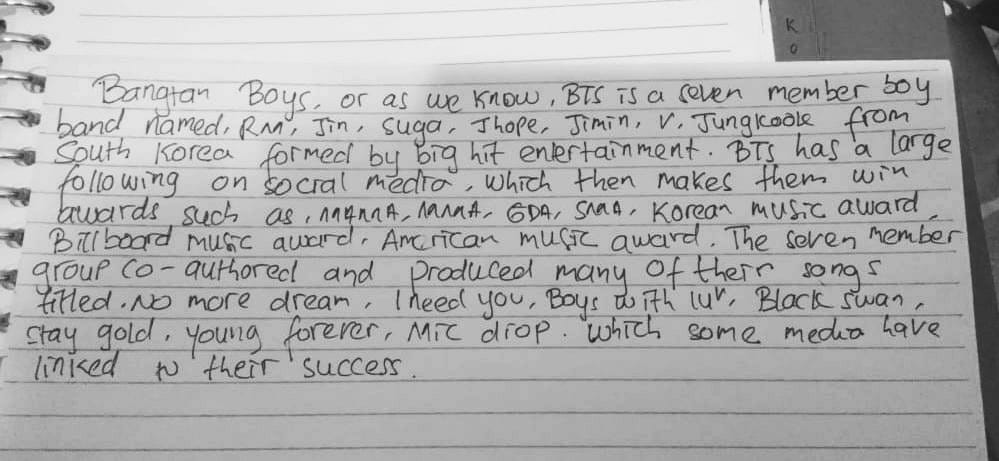 K
O
Bangtan Boys, or as we know, BTS is a seven member boy
band named, RM, Jin, Suga, Jhope, Jimin, V, Jungkook from
South Korea formed by big hit entertainment. BTS has a large
following on social media, which then makes them win
awards such as, MAMA, GDA, SMA, Korean music award,
Billboard music award, American music award. The seven member
group co-authored and produced many of their songs
titled, No more dream, I need you, Boys with luv, Black swan,
stay gold, young forever, Mic drop. Which some media have
linked to their success.